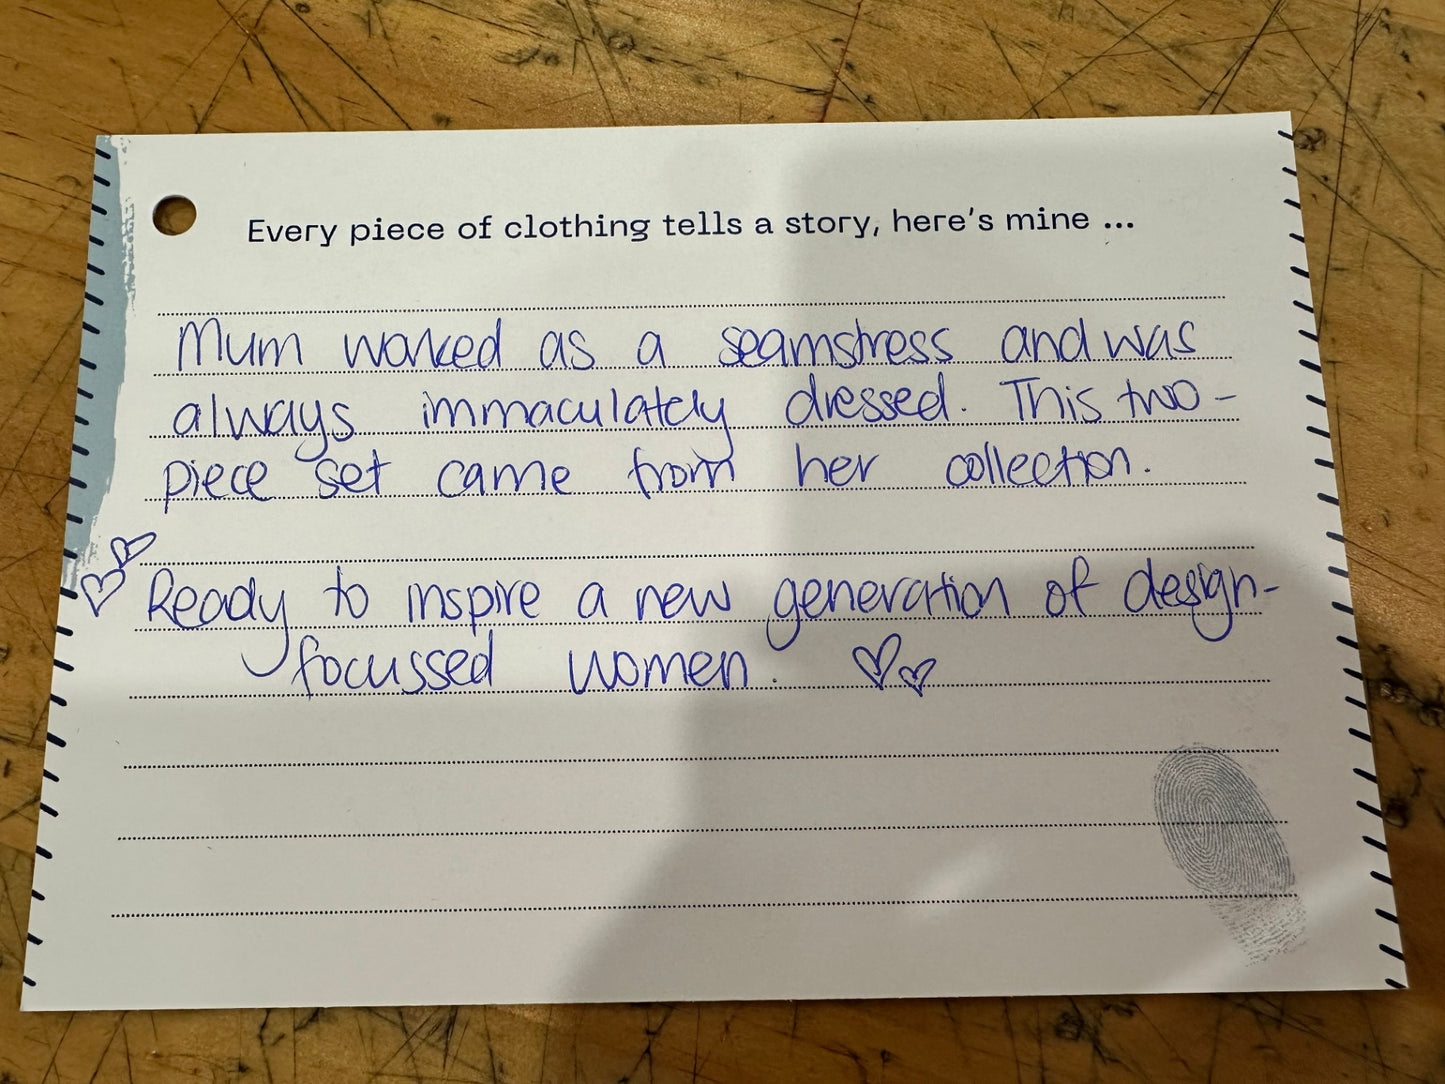 Every piece of clothing tells a story, here's mine ...
Mum worked as a seamstress and was
always immaculately dressed. This two-
piece set came from her collection.
Ready to inspire a new generation of design-
focussed women.